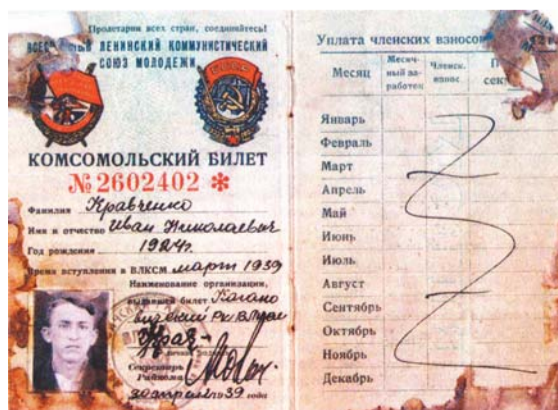 Пролетарии всех стран, соединяйтесь!
ЛЕНИНСКИЙ КОММУНИСТИЧЕСКИЙ
СОЮЗ МОЛОДЕЖИ
КОМСОМОЛЬСКИЙ БИЛЕТ
№ 2602402 *
Фамилия Кравченко
Имя и отчество Иван Николаевич
Год рождения 1924г.
Время вступления в ВЛКСМ март 1939
Наименование организации,
выдавшей билет
РК ВЛКСМ
Секретарь
Райкома
30 апреля 1939 года
Уплата членских взносов
Месяц
Месяч-
ный за-
работок
Членск.
взнос
Январь
Февраль
Март
Апрель
Май
Июнь
Июль
Август
Сентябрь
Октябрь
Ноябрь
Декабрь